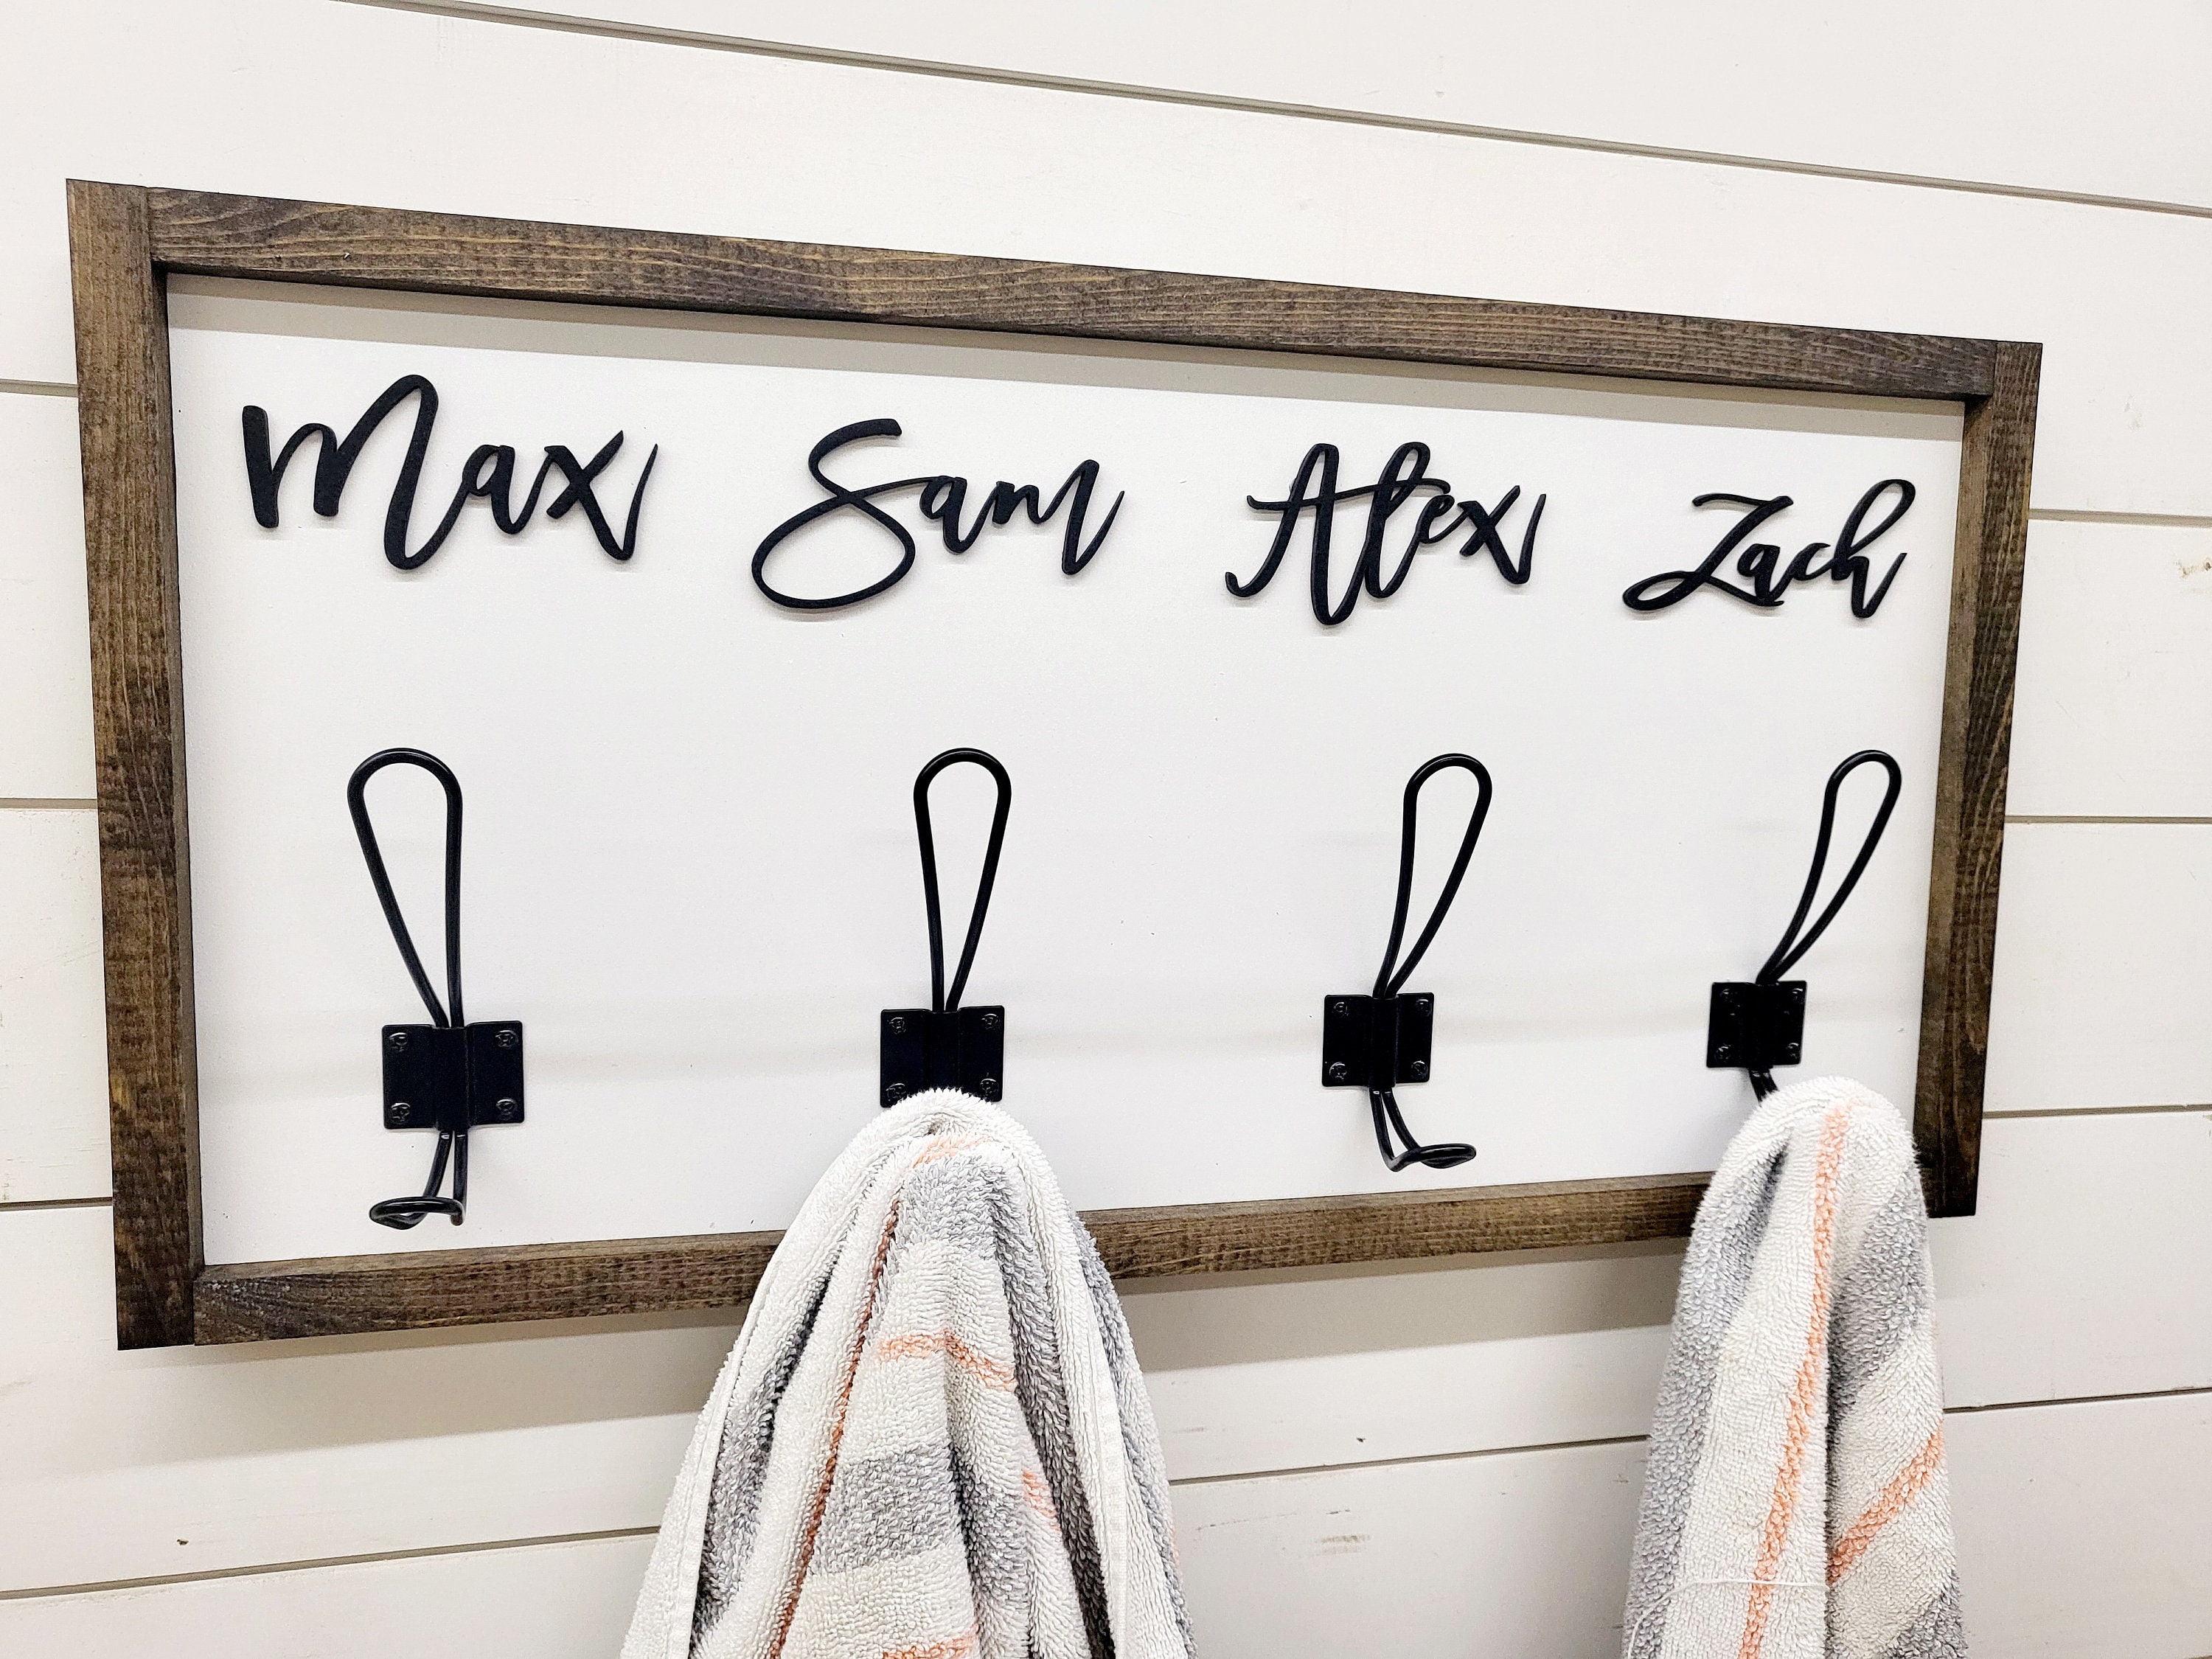 Max Sam Alex Zach